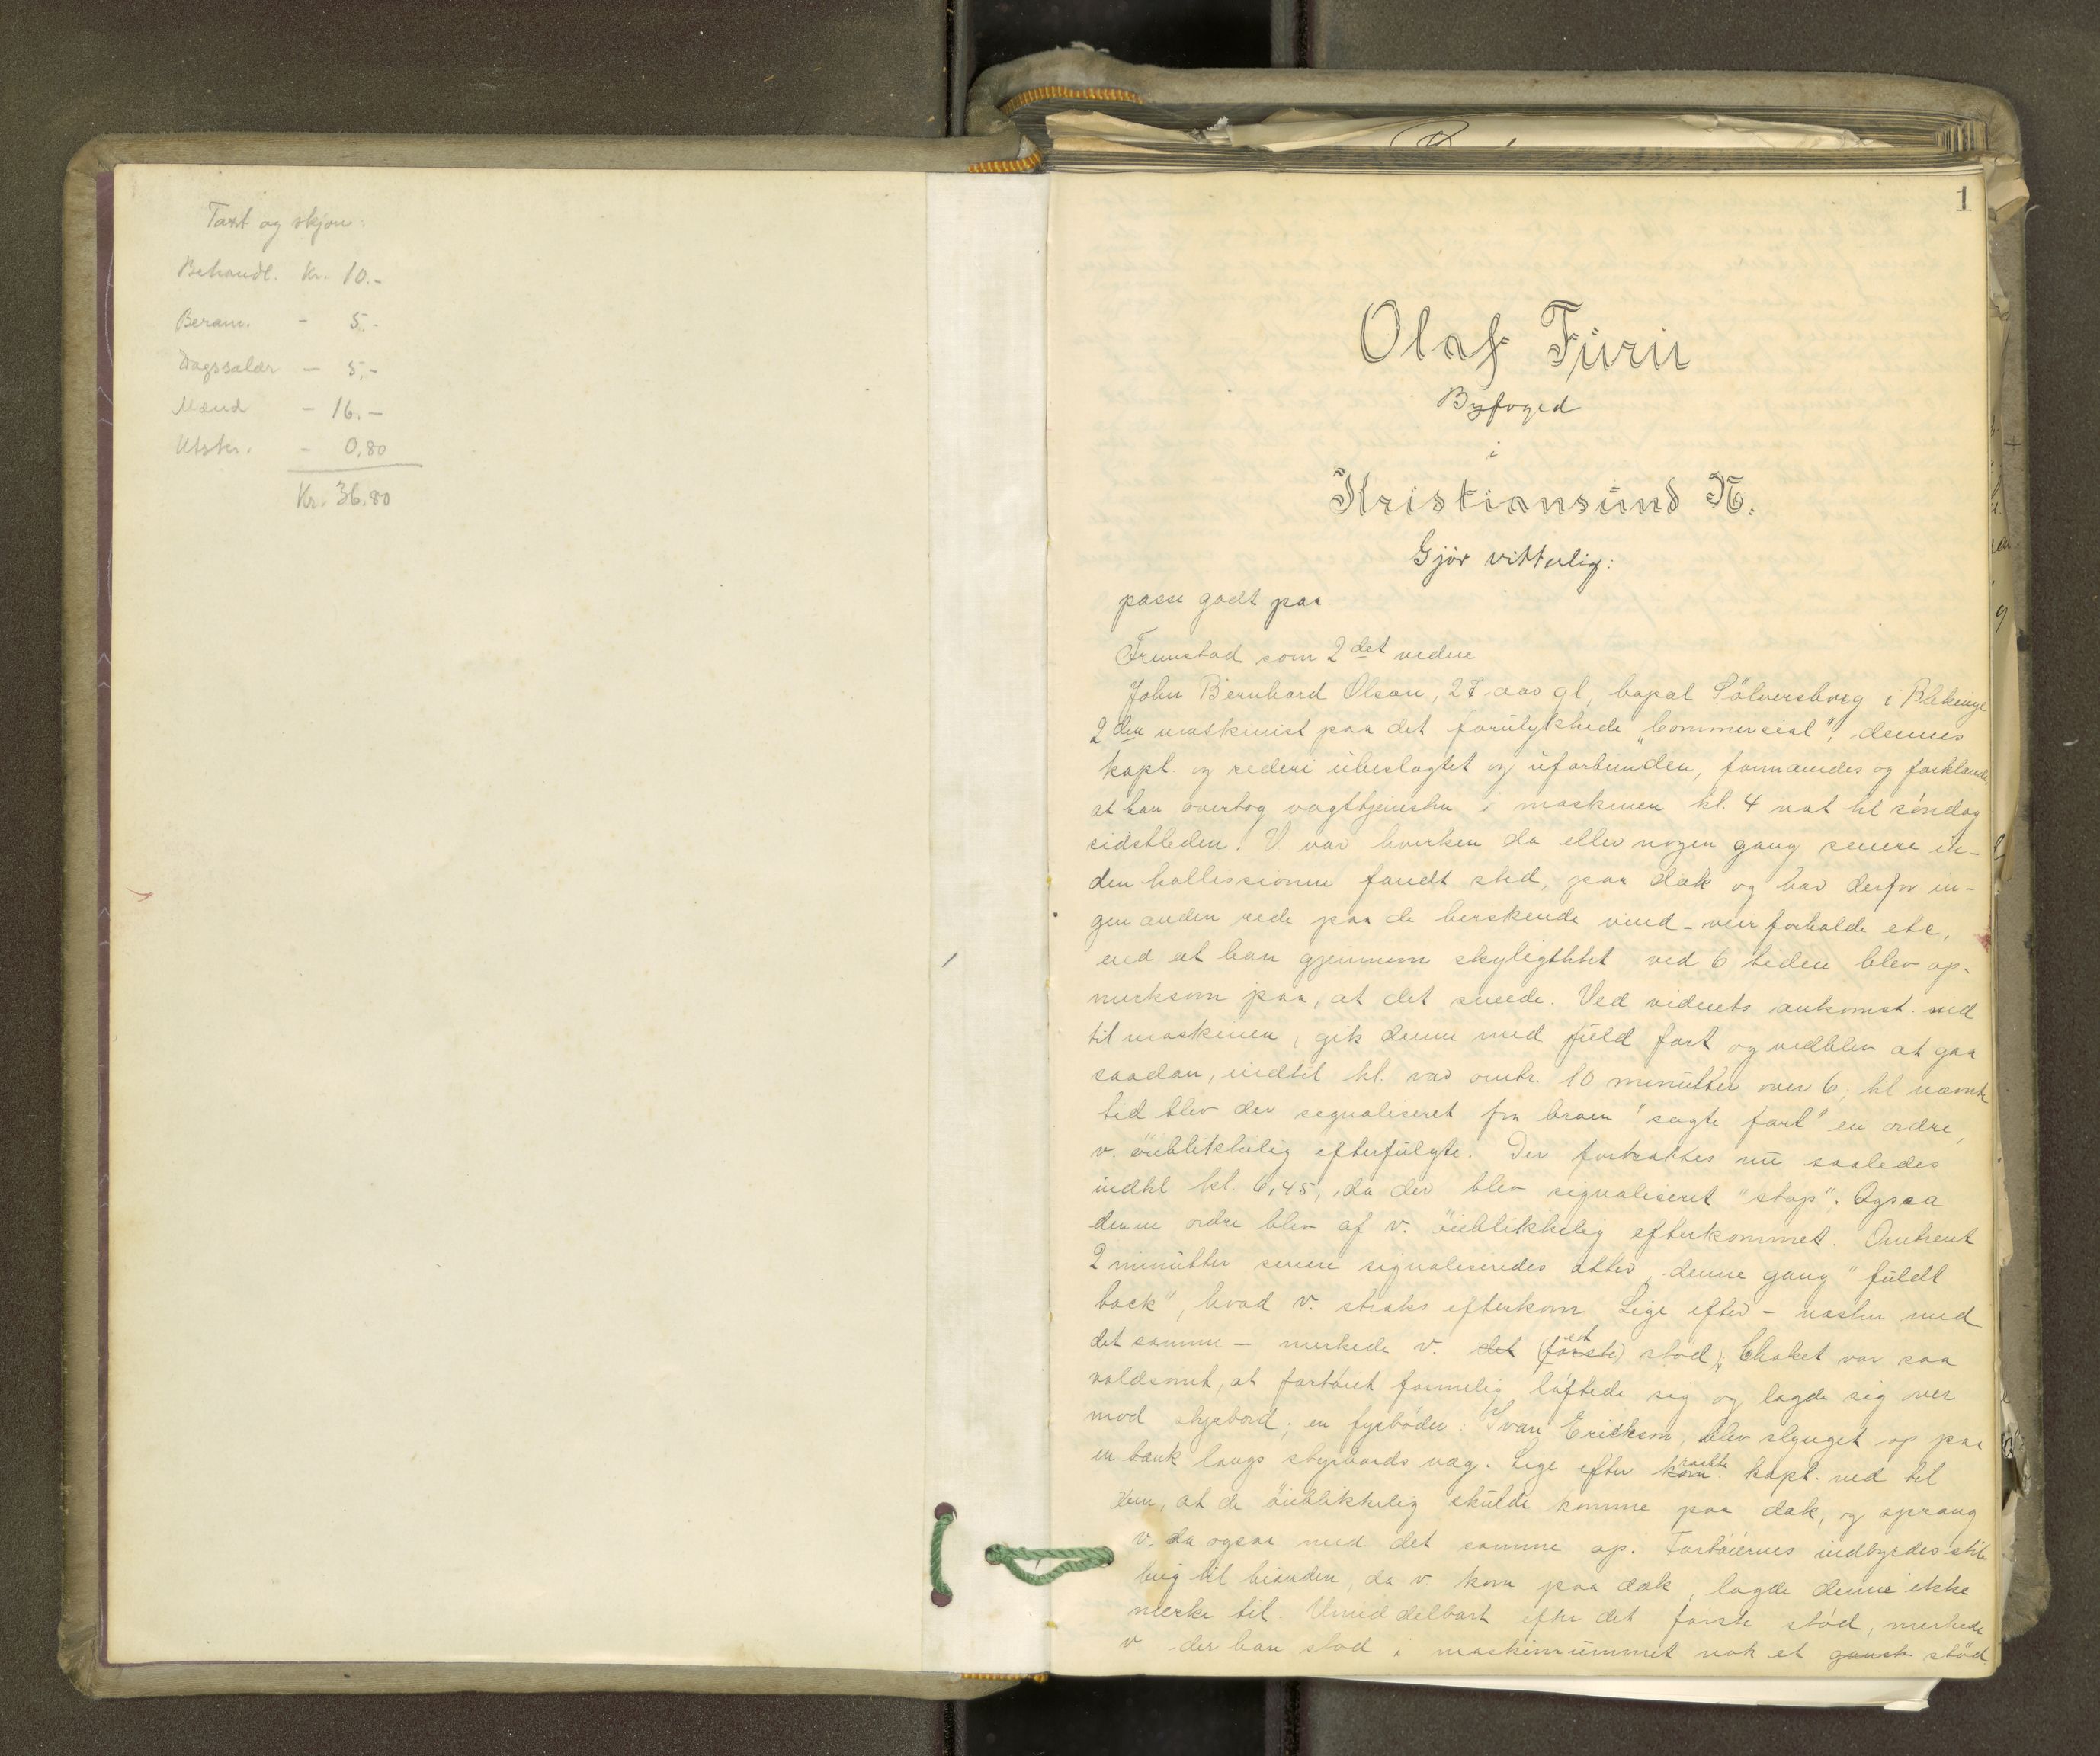 Taxt og skjøn:
Behandl. Kr. 10.-
Beram. - 5.-
Dagssalær - 5,-
Mænd - 16.-
Utskr. - 0,80
Kr. 36.80
1
Olaf Furu
Byfoged
i
Kristiansund N.
Gjør vitterlig:
passe godt paa
Fremstod som 2det vidne
John Bernhard Olson, 27 aar gl, bopæl Sölversborg i Blekinge
2den maskinist paa det forulykkede "Commersial", dennes
kapt. og rederi ubeslagtet og uforbunden, formanedes og forklarede,
at han overtog vagttjenesten i maskinen kl. 4 nat til søndag
sidstleden. V var hverken da eller nogen gang senere in-
den kollissionen fandt sted, paa dæk og har derfor in-
gen anden rede paa de herskende vind-veirforholde etc,
end at han gjennem skyligthtet ved 6 tiden blev op-
merksom paa, at det sneede. Ved vidnets ankomst ned
til maskinen, gik denne med fuld fart og vedblev at gaa
saadan, indtil kl. var omtr. 10 minutter over 6; til nævnte
tid blev der signaliseret fra broen "sagte fart" en ordre,
v. öieblikkelig efterfulgte. Der fortsattes nu saaledes
indtil kl. 6,45, da der blev signaliseret "stop". Ogsaa
denne ordre blev af v. öieblikkelig efterkommet. Omtrent
2 minutter senere signaliseredes atter, denne gang "fuldt
back", hvad v. straks efterkom Lige efter - næsten med
det samme - merkede v. det (første) et stød; Choket var saa
voldsomt, at fartøiet formelig løftede sig og lagde sig over
mod styrbord; en fyrbøder: Ivan Erickson, blev slynget op paa
en bænk langs styrbords væg. Lige efter kom raabte kapt. ned til
dem, at de öieblikkelig skulde komme paa dæk, og sprang
v. da ogsaa med det samme op. Fartøiernes indbyrdes stil-
ling til hinanden, da v. kom paa dæk, lagde denne ikke
merke til. Umiddelbart efter det første stød, merkede
v der han stod i maskinrummet nok et ganske stød